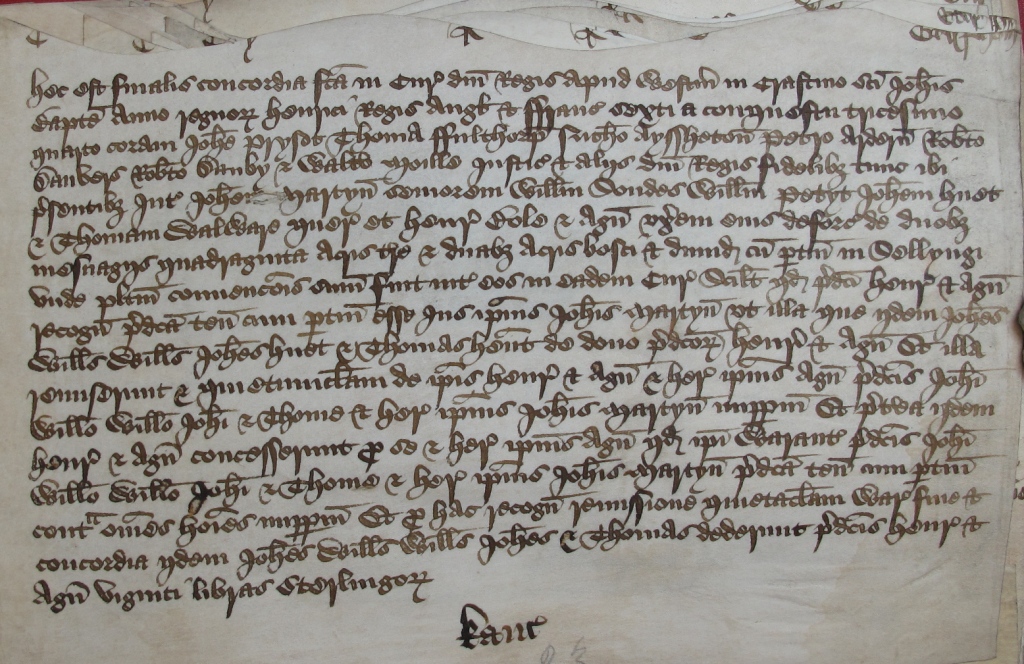 Hec est finalis concordia fcā in Cur' dn̄i Regis apud Westm̄ in Crastino sc̄i Joh̄is
Bapte Anno regnor̄ Henrici Regis Angl' & ffranc' sexti a conquestu tricesimo
quarto coram Joh̄e Prysot Thoma ffulthorp Nich̄o Ayssheton̄ Petro Ardern̄ Rob̄to
Danvers Rob̄to Danby & Walt̄o Moille Justic' & alijs dn̄i Regis fidelibȝ tunc ibi
p̄sentibȝ Int' Joh̄em Martyn̄ seniorem Will̄m Sondes Will̄m Petyt Joh̄em Huet
& Thomam Walware quer' et Henr' Cole & Agn̄ vx̄em eius deforc' de duobȝ
mesuagijs quadraginta Acris tr̄e & duabȝ Acris bosci & dimid' cū ptin̄ in Sellyngi
vnde pl̄itm̄ convencōis sum̄ fuit int' eos in eadem Cur' Scil̄t qd' p̄dc̄i Henr' & Agn̄
recogn̄ p̄dc̄a ten̄ cum ptin̄ esse Jus ip̄ius Joh̄is Martyn̄ vt illa que ijdem Joh̄es
Will̄s Will̄s Joh̄es Huet & Thomas hēnt de dono p̄dc̄or' Henr' & Agn̄ Et illa
remiserunt & quietumclam̄ de ip̄is Henr' & Agn̄ & her' ip̄ius Agn̄ p̄dc̄is Joh̄i
Will̄o Will̄o Joh̄i & Thome & her' ip̄ius Joh̄is Martyn̄ imppm̄ Et p̄terea ijdem
Henr' & Agn̄ concesserunt p se & her' ip̄ius Agn̄ qd' ip̄i Warant' p̄dc̄is Joh̄i
Will̄o Will̄o Joh̄i & Thome & her' ip̄ius Joh̄is Martyn̄ p̄dc̄a ten̄ cum ptin̄
contᵃ om̄es hōies imppm̄ Et p hac recogn̄ remissione quietaclam̄ War' fine &
concordia ijdem Joh̄es Will̄s Will̄s Joh̄es & Thomas dederunt p̄dc̄is Henr' &
Agn̄ viginti libras Sterlingor'
Kanc'